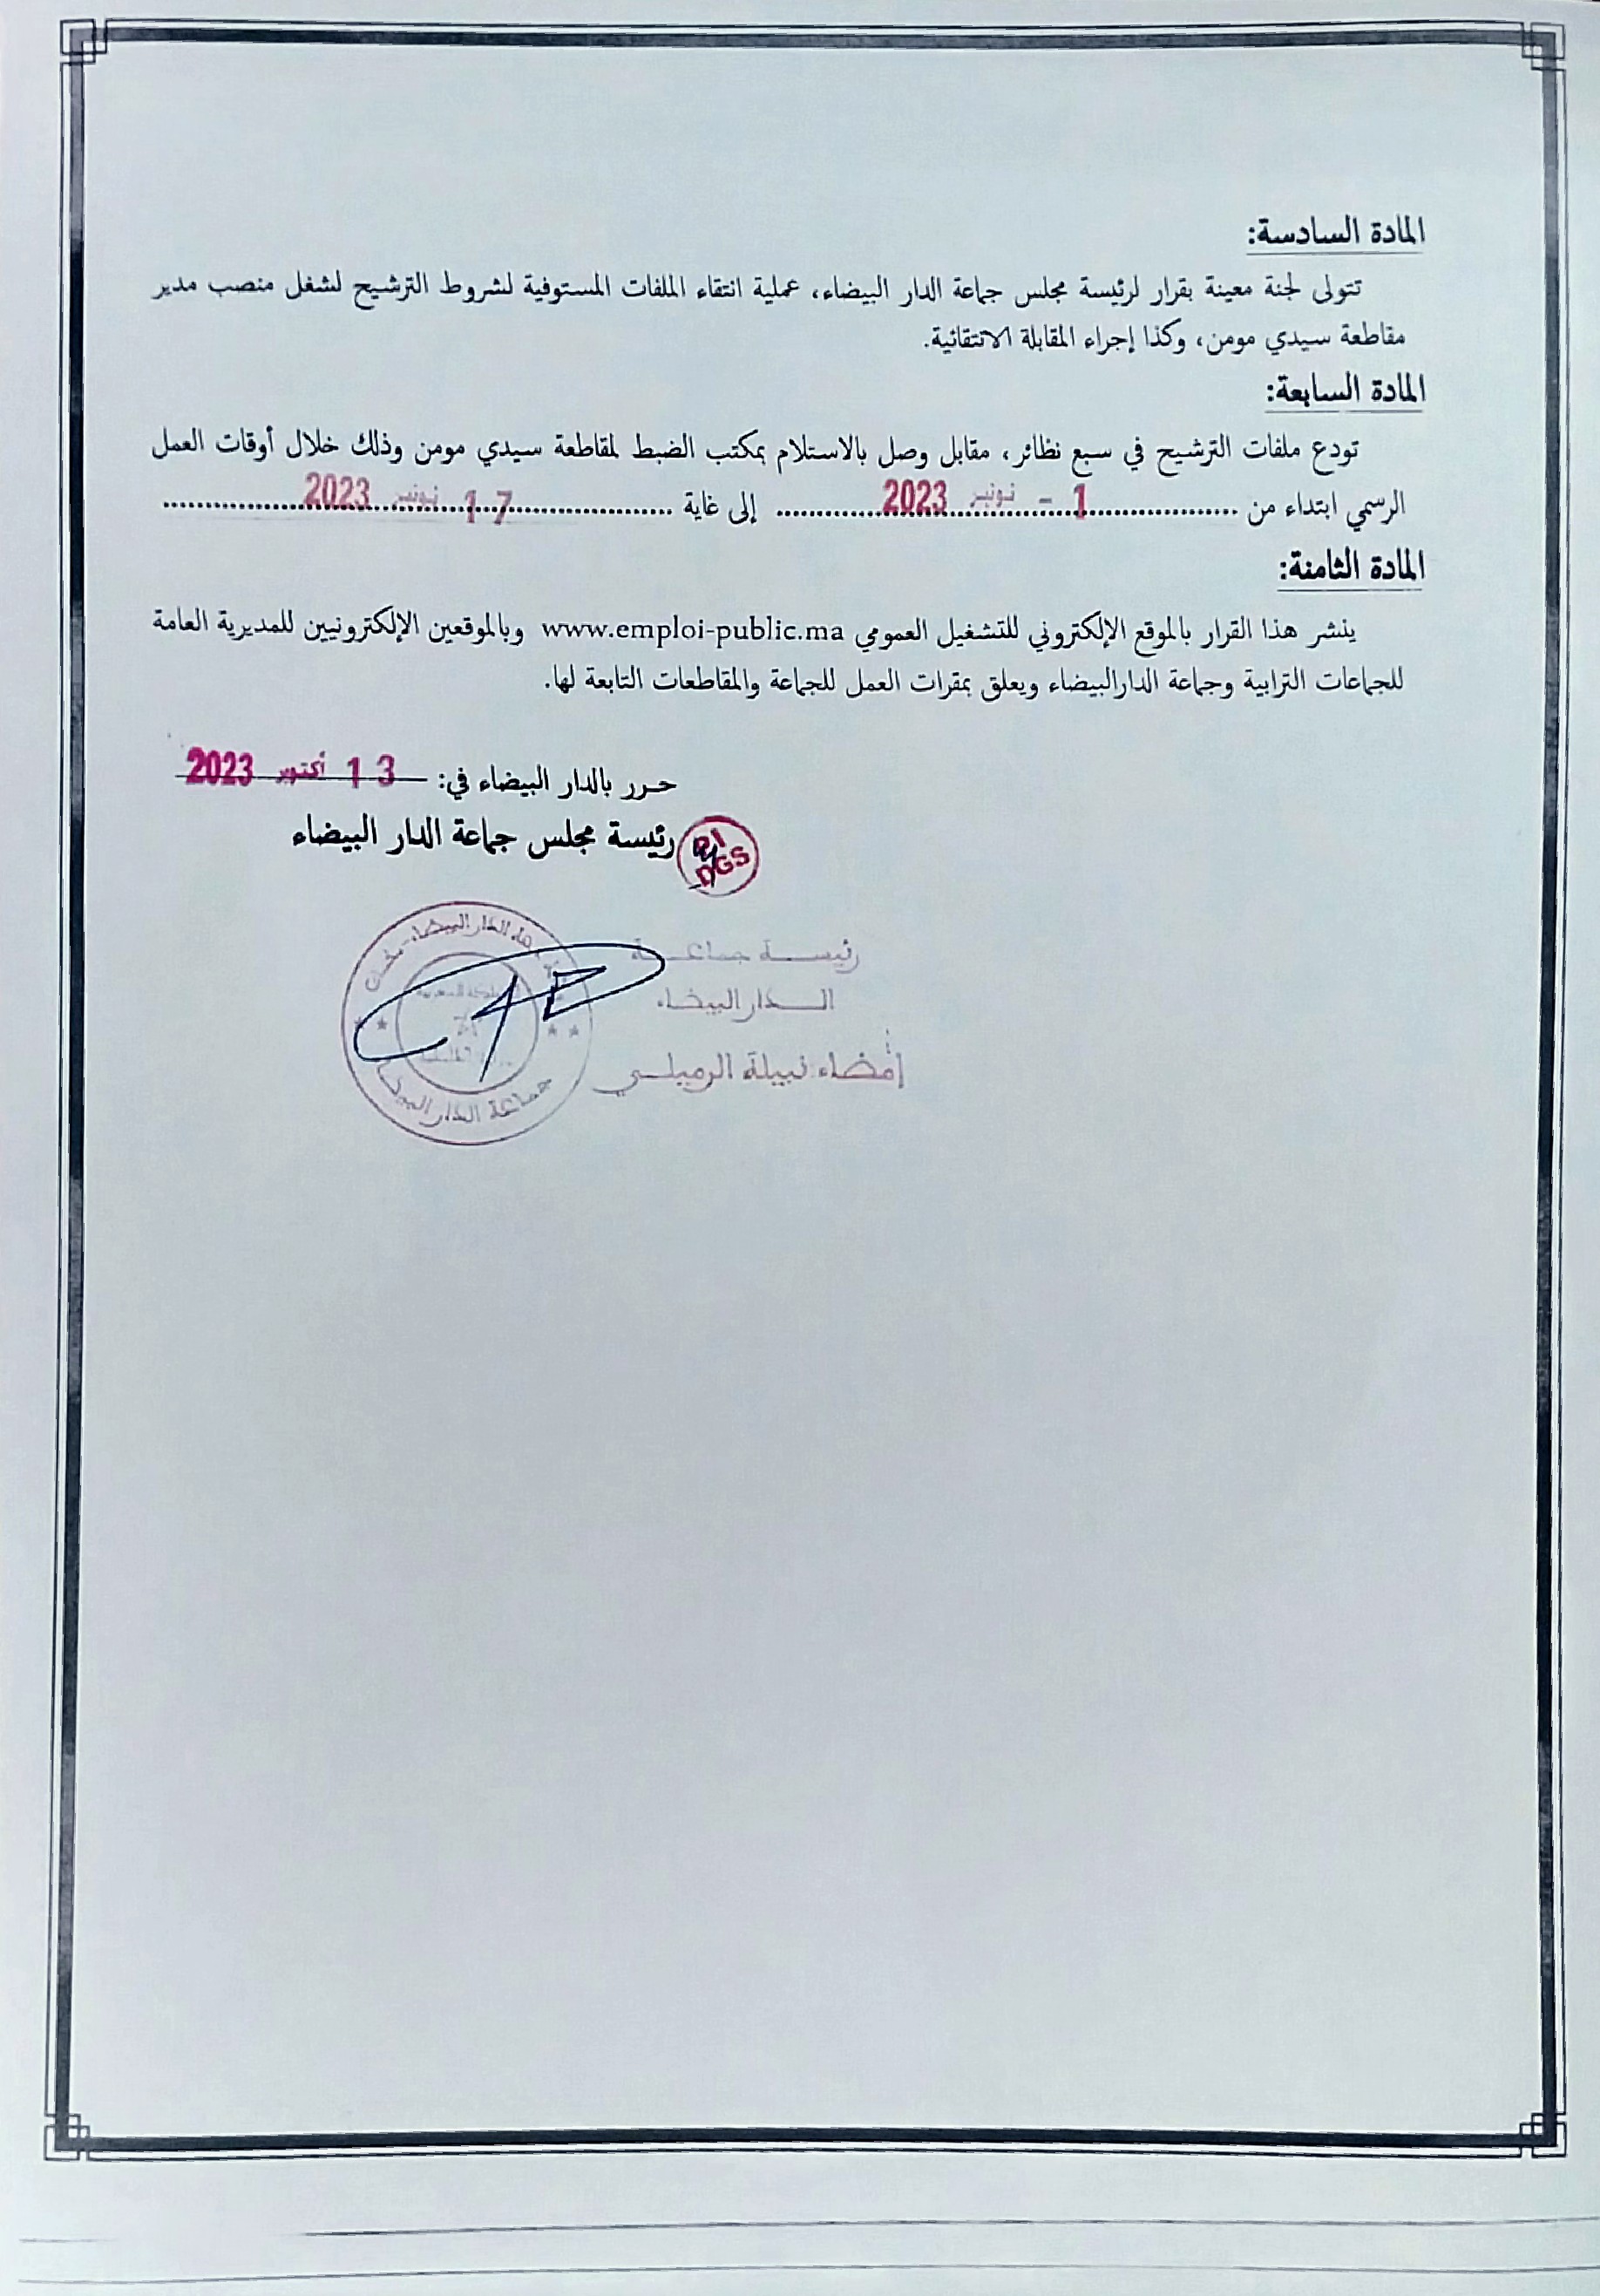 المادة السادسة:
تتولى لجنة معينة بقرار لرئيسة مجلس جماعة الدار البيضاء، عملية انتقاء الملفات المستوفية لشروط الترشيح لشغل منصب مدير
مقاطعة سيدي مومن، وكذا إجراء المقابلة الانتقائية.
المادة السابعة:
تودع ملفات الترشيح في سبع نظائر، مقابل وصل بالاستلام بمكتب الضبط لمقاطعة سيدي مومن وذلك خلال أوقات العمل
الرسمي ابتداء من 1 - نونبر 2023 إلى غاية 17 نونبر 2023
المادة الثامنة:
ينشر هذا القرار بالموقع الإلكتروني للتشغيل العمومي www.emploi-public.ma وبالموقعين الإلكترونيين للمديرية العامة
للجماعات الترابية وجماعة الدارالبيضاء ويعلق بمقرات العمل للجماعة والمقاطعات التابعة لها.
حرر بالدار البيضاء في: 13 أكتوبر 2023
رئيسة مجلس جماعة الدار البيضاء
DGS
رئيسة جماعة
الدار البيضاء
إمضاء نبيلة الرميلي
المملكة المغربية
جماعة الدار البيضاء